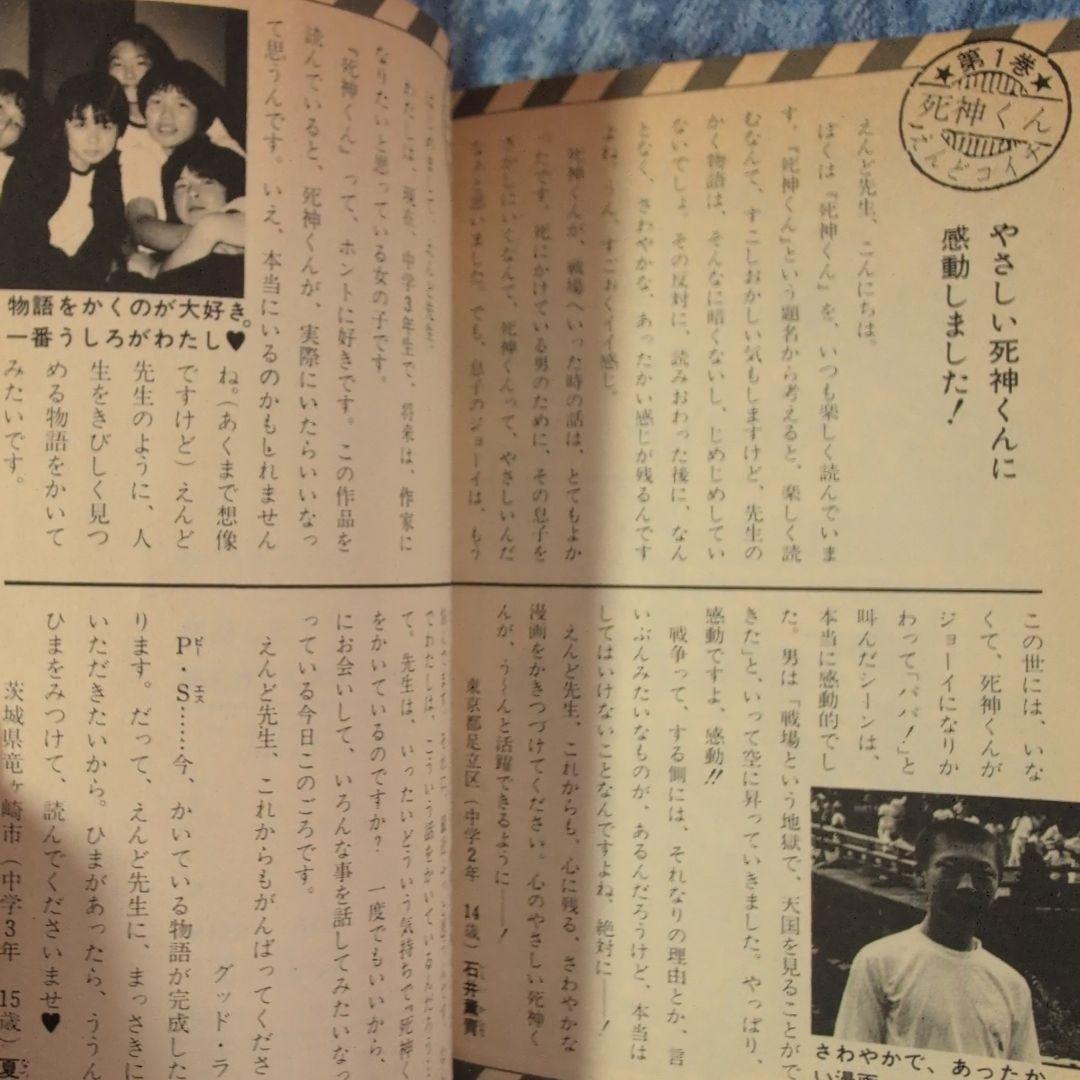 ★第1巻★
死神くん
えんどコイチ
やさしい死神くんに
感動しました！
えんど先生、こんにちは。
ぼくは『死神くん』を、いつも楽しく読んでいま
す。『死神くん』という題名から考えると、楽しく読
むなんて、すこしおかしい気もしますけど、先生の
かく物語は、そんなに暗くないし、じめじめしてい
ないでしょ。その反対に、読みおわった後に、なん
となく、さわやかな、あったかい感じが残るんです
よね。うん、すごおくイイ感じ。
死神くんが、戦場へいった時の話は、とてもよか
ったです。死にかけている男のために、その息子を
さがしにいくなんて、死神くんって、やさしいんだ
なぁと思いました。でも、息子のジョーイは、もう
この世には、いな
くて、死神くんが
ジョーイになりか
わって「パパ！」と
叫んだシーンは、
本当に感動的でし
た。男は「戦場という地獄で、天国を見ることがで
きた」と、いって空に昇っていきました。やっぱり、
感動ですよ、感動!!
戦争って、する側には、それなりの理由とか、言
いぶんみたいなものが、あるんだろうけど、本当は
してはいけないことなんですよね、絶対に——！
えんど先生、これからも、心に残る、さわやかな
漫画をかきつづけてください。心のやさしい死神く
んが、う〜んと活躍できるように——！
東京都足立区（中学2年 14歳）石井
さわやかで、あったか
い漫画
わたしは、現在、中学3年生で、将来は、作家に
なりたいと思っている女の子です。
『死神くん』って、ホントに好きです。この作品を
読んでいると、死神くんが、実際にいたらいいなっ
て思うんです。いえ、本当にいるのかもしれません
物語をかくのが大好き。
一番うしろがわたし♥
ね。（あくまで想像
ですけど）えんど
先生のように、人
生をきびしく見つ
める物語をかいて
みたいです。
でわたしは、こういう話をかいているんだろう
て。先生は、いったいどういう気持ちで『死神く
をかいているのですか？ 一度でもいいから、
にお会いして、いろんな事を話してみたいなっ
っている今日このごろです。
えんど先生、これからもがんばってくださ
グッド・ラ
P・S……今、かいている物語が完成した
ピー エス
ります。だって、えんど先生に、まっさきに
いただきたいから。ひまがあったら、ううん
ひまをみつけて、読んでくださいませ♥
茨城県竜ヶ崎市（中学3年 15歳）夏